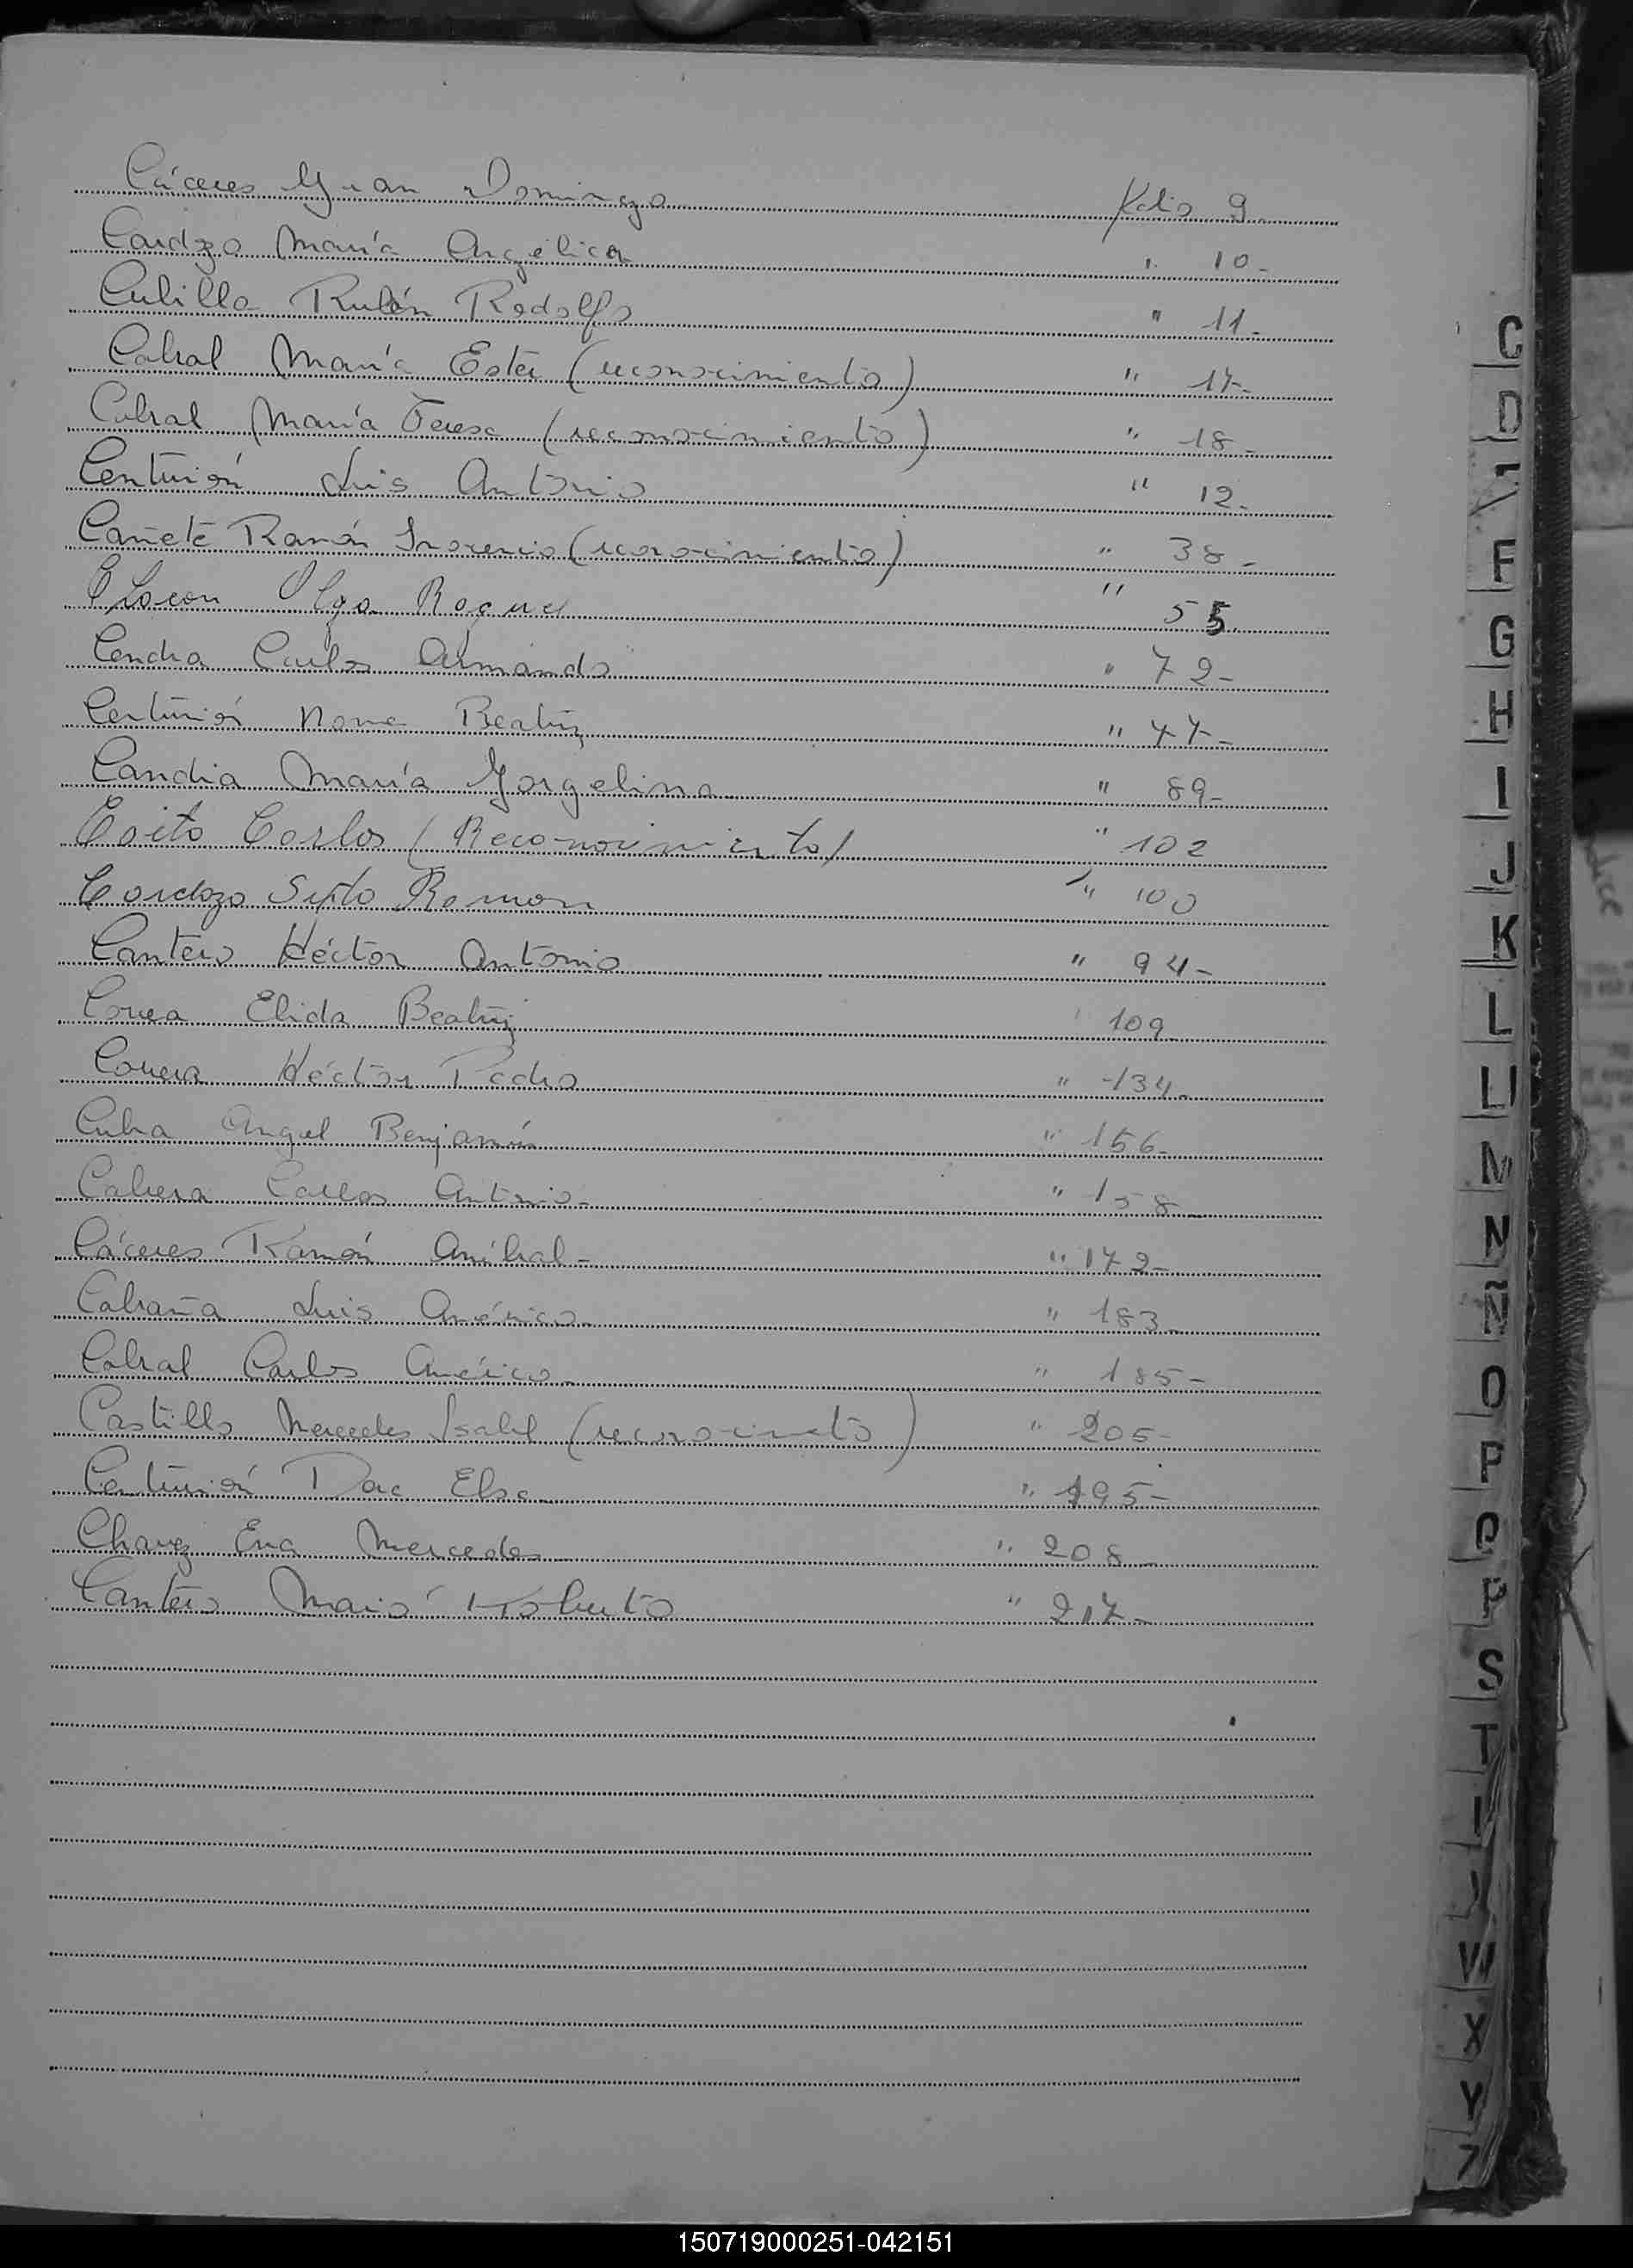 Cáceres Juan Domingo Folio 9
Cardozo María Angélica " 10-
Cubilla Rubén Rodolfo " 11-
Cabral María Ester (reconocimiento) " 17-
Cabral María Teresa (reconocimiento) " 18-
Centurión Luis Antonio " 12-
Cañete Ramón Inocencio (reconocimiento) " 38-
Olga Raquel " 55
Concha Carlos Armando " 72-
Centurión Norma Beatriz " 77-
Candia María Jorgelina " 89-
Carlos (Reconocimiento) " 102
Cardozo Sixto Ramon " 100
Cantero Héctor Antonio " 94-
Correa Elida Beatriz 109
Correa Héctor Pedro " 134-
Cuba Angel Benjamín " 156-
Cabrera Carlos Antonio- " 158
Cáceres Ramón Aníbal- " 172-
Cabaña Luis Américo- " 183
Cabral Carlos Américo- " 185-
Castillo Mercedes Isabel " 205-
Centurión Elsa " 195-
Chavez Eva Mercedes " 208
Cantero Mario Roberto " 217-
C
D
F
G
H
I
J
K
L
M
N
Ñ
O
P
S
T
W
X
Y
150719000251-042151